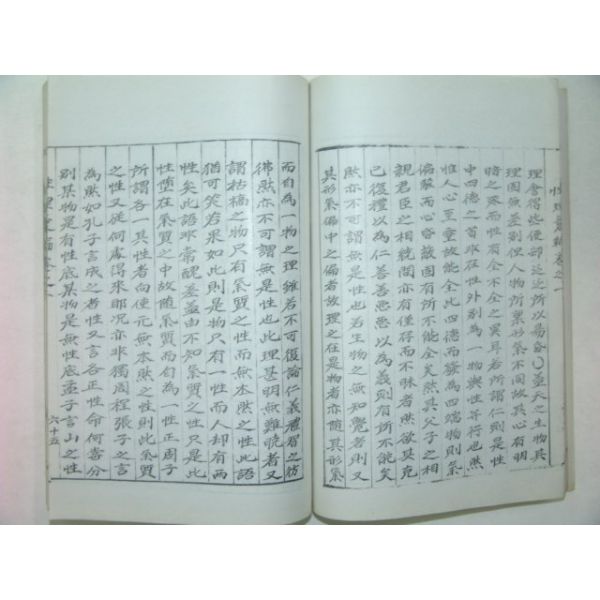 理會得些便都近近所以易名〇蓋天之生物其
理固無差別但人物所稟形氣不同故其心有明
暗之殊而性有全不全之異耳若所謂仁則是性
中四德之首非在性外別為一物與性並行也然
惟人心至靈故能全此四德而發為四端物則氣
偏駁而心昏蔽固有所不能全矣然其父子之相
親君臣之相統間亦有僅存而不昧者然欲其克
己復禮以為仁善善惡惡以為義則有所不能矣
然亦不可謂無是性也若生物之無知覺者則又
其形氣偏中之偏者故理之在是物者亦隨其形氣
而自為一物之理雖若不可復論仁義禮智之彷
彿然亦不可謂無是性也此理甚明無難曉者又
謂枯槁之物只有氣質之性而無本然之性此語
猶可笑若果如此則是物只有一性而人却有兩
性矣此語非常醜差蓋由不知氣質之性只是此
性墮在氣質之中故隨氣質而自為一性正周子
所謂各一其性者向使元無本然之性則此氣質
之性又從何處得來耶況亦非獨周程張子之言
為然如孔子言成之者性又言各正性命何嘗分
別某物是有性底某物是無性底孟子言山之性
六十五